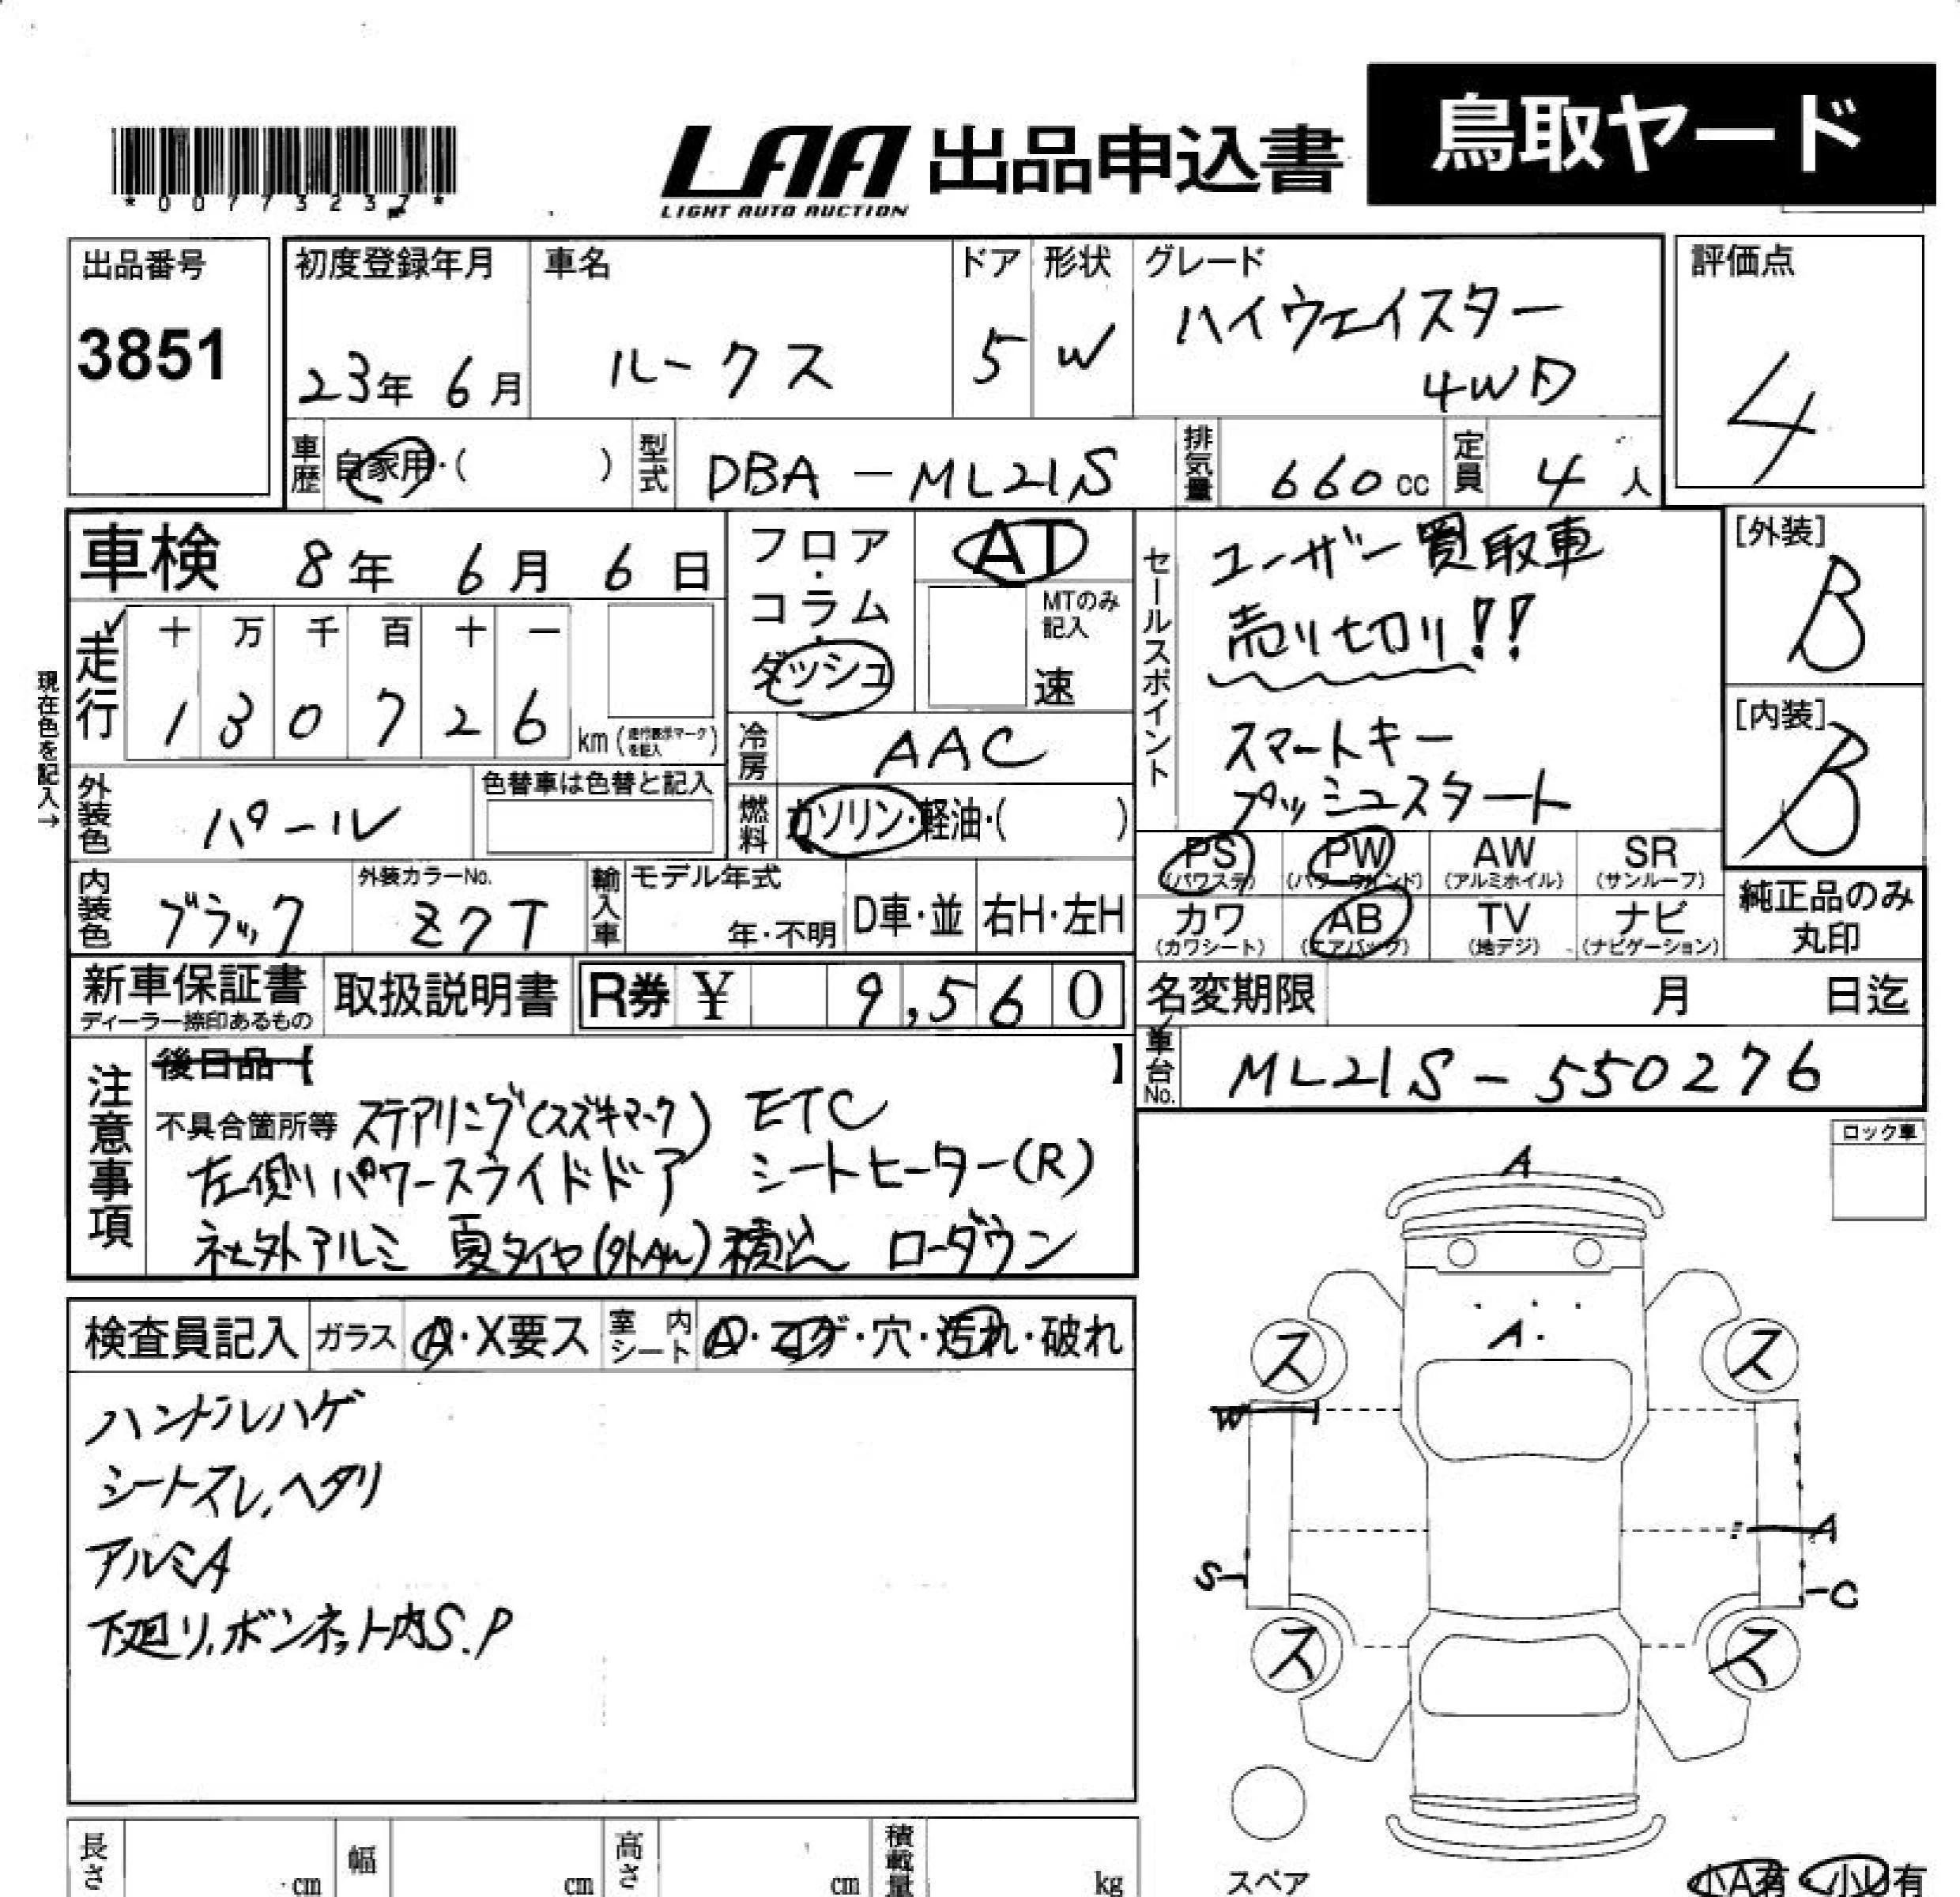 鳥取ヤード
LAA 出品申込書
LIGHT AUTO AUCTION
*00773237*
出品番号
3851
初度登録年月
23年 6月
車名
ルークス
ドア
5
形状
W
グレード
ハイウェイスター
4WD
評価点
4
車歴
自家用・( )
型式
DBA-ML21S
排気量
660cc
定員
4人
車検 8年 6月 6日
フロア・コラム・ダッシュ
AT
MTのみ記入
速
セールスポイント
ユーザー買取車
売り切り!!
スマートキー
プッシュスタート
[外装]
B
[内装]
B
現在色を記入→
走行
十 万 千 百 十 一
1 3 0 7 2 6
km(走行表示マークを記入)
冷房
AAC
外装色
パール
色替車は色替と記入
燃料
ガソリン・軽油・( )
PS (パワステ)
PW
AW (アルミホイル)
SR (サンルーフ)
内装色
ブラック
外装カラーNo.
Z7T
輸入車
モデル年式
年・不明
D車・並
右H・左H
カワ (カワシート)
AB (エアバック)
TV (地デジ)
ナビ (ナビゲーション)
純正品のみ
丸印
新車保証書
ディーラー捺印あるもの
取扱説明書
R券 ¥ 9,560
名変期限 月 日迄
車台No.
ML21S-550276
注意事項
後日品【 】
不具合箇所等 ステアリング(スズキマーク) ETC
左側パワースライドドア シートヒーター(R)
社外アルミ 夏タイヤ(外AW)積込 ローダウン
ロック車
検査員記入
ガラス
A・X要ス
室内シート
A・コゲ・穴・汚れ・破れ
ハンドルハゲ
シートスレ、ヘタリ
アルミA
下廻り、ボンネット内S.P
A
A
ス
ス
W
A
S
C
ス
ス
スペア
小A有 小U有
長さ cm
幅 cm
高さ cm
積載量 kg